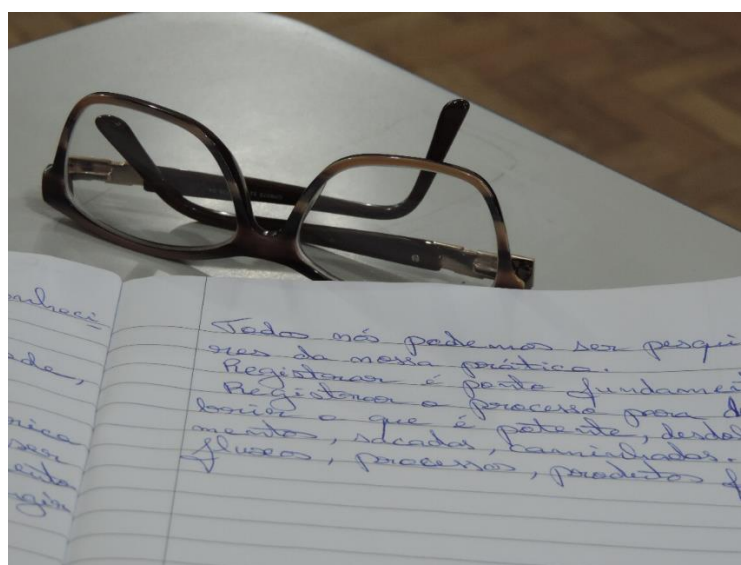 nheci
ade,
nica
ser
ento
Todos nós podemos ser pesqui
res da nossa prática.
Registrar é ponto fundament
Registrar o processo para d
brir o que é potente, desdob
mentos, sacadas, caminhadas.
fluxos, processos, produtos f